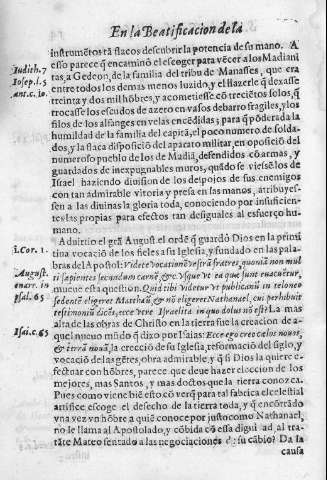 En la Beatificacion de la
instrumẽtos tã flacos descubrir la potencia de su mano. A
esso parece q̃ encaminò el escoger para vẽcer a los Madiani
tas, a Gedeon, de la familia del tribu de Manasses, que era
entre todos los demas menos luzido, y el hazerle q̃ dexasse
treinta y dos mil hõbres, y acometiesse cõ trecietos solos, q̃
trocasse los escudos de azero en vasos de barro fragiles, y los
filos de los alfanges en velas encẽdidas; para q̃ põderada la
humildad de la familia del capitã, el poco numero de solda-
dos, y la flaca disposiciõ del aparato militar, en oposiciõ del
numeroso pueblo de los de Madiã, defendidos cõ armas, y
guardados de inexpugnables muros, quãdo se viessẽ los de
Israel haziendo diuision de los despojos de sus enemigos
con tan admirable vitoria y presa en las manos, atribuyes-
sen a las diuinas la gloria toda, conociendo por insuficien-
tes las propias para efectos tan desiguales al esfuerço hu-
mano.
Iudith. 7
Iosep. l. 5
ant. c. 10.
Aduirtio el grã August. el ordẽ q̃ guardò Dios en la primi
tiua vocaciõ de los fieles a su Iglesia, y fundado en las pala-
bras del Apostol: Videte vocationẽ vestrã fratres, quoniã non mul
ti sapientes secundum carnẽ, &c. vsque vt ea que sunt euacuẽtur,
mueue esta question. Quid tibi videtur vt publicanũ in telonio
sedentẽ eligeret Matthæũ, & nõ eligeret Nathanael, cui perhibuit
testimoniũ dicẽs, ecce vere Israelita in quo dolus nõ est? La mas
alta de las obras de Christo en la tierra fue la creacion de a-
quel nueuo mũdo q̃ dixo por Isaias: Ecce ego creo cælos nouos,
& terrã nouã, la erecciõ de su Iglesia, reformaciõ del siglo, y
vocaciõ de las gẽtes, obra admirable, y q̃ si Dios la quiere e-
fectuar con hõbres, parece que deue hazer eleccion de los
mejores, mas Santos, y mas doctos que la tierra conozca.
Pues como viene biẽ esto, cõ verq̃ para tal fabrica el celestial
artifice escoge el desecho de la tierra toda, y q̃ encõtrado
vna vez vn hõbre a quiẽ conoce por justo como Nathanael,
no le llama al Apostolado, y cõbida cõ essa dignidad, al tra-
tãte Mateo sentado a las negociaciones de su cãbio? Da la
causa
1. Cor. 1.
August.
enarr. in
psal. 65
Isai. c. 65